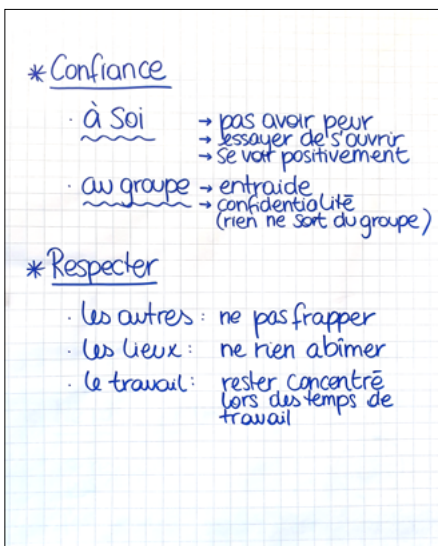 * Confiance
· à soi → pas avoir peur
→ essayer de s'ouvrir
→ se voir positivement
· au groupe → entraide
→ confidentialité
(rien ne sort du groupe)
* Respecter
· les autres : ne pas frapper
· les lieux : ne rien abîmer
· le travail : rester concentré
lors des temps de
travail